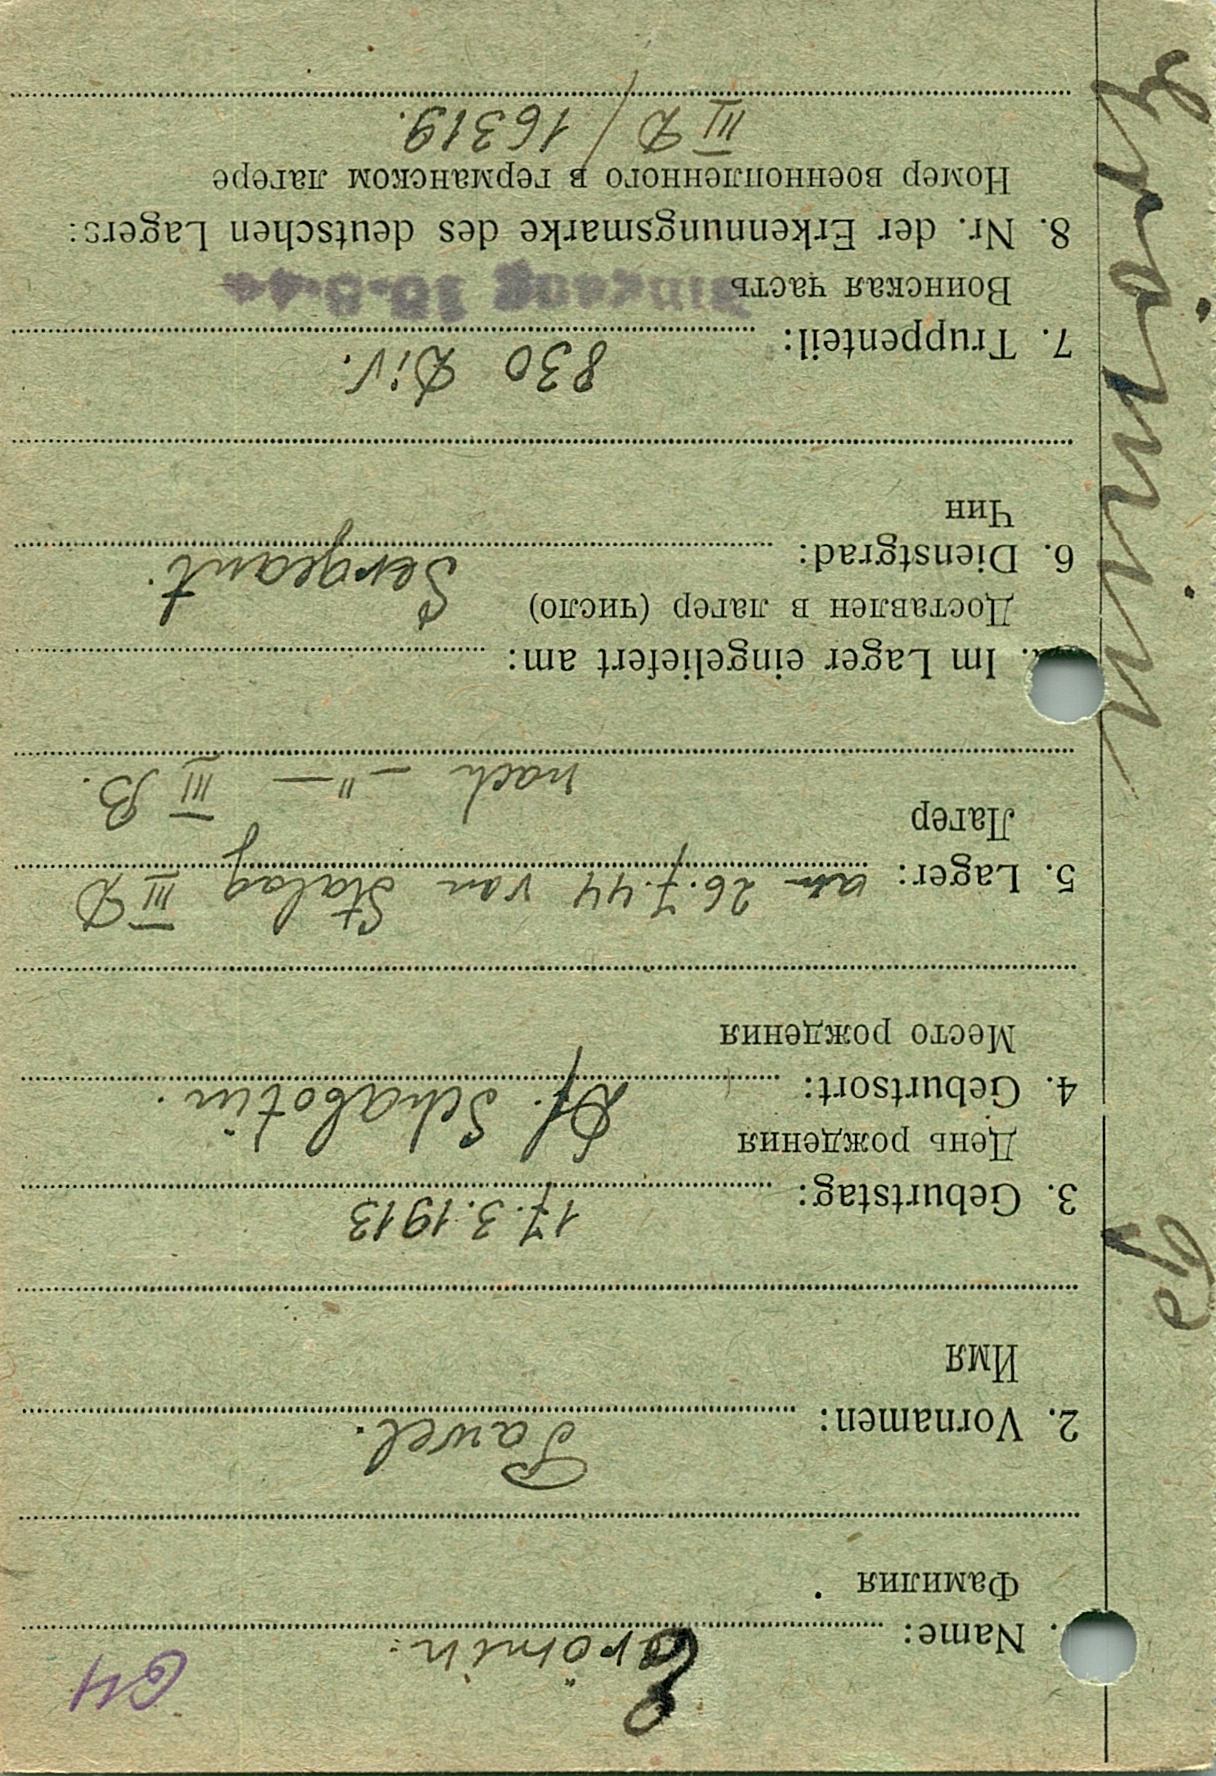 64
Erömin.
1. Name:
Фамилия
Pawel.
2. Vornamen:
Имя
17.3.1913
3. Geburtstag:
День рождения
Df. Schabotin.
4. Geburtsort:
Место рождения
am 26.7.44 von Stalag III D
5. Lager:
Лагер
nach —"— III B.
Im Lager eingeliefert am:
Доставлен в лагер (число)
Sergeant.
6. Dienstgrad:
Чин
830 Div.
7. Truppenteil:
Воинская часть
Eingang 10.8.44
8. Nr. der Erkennungsmarke des deutschen Lagers:
Номер военнопленного в германском лагере
III D / 16319.
Erömin